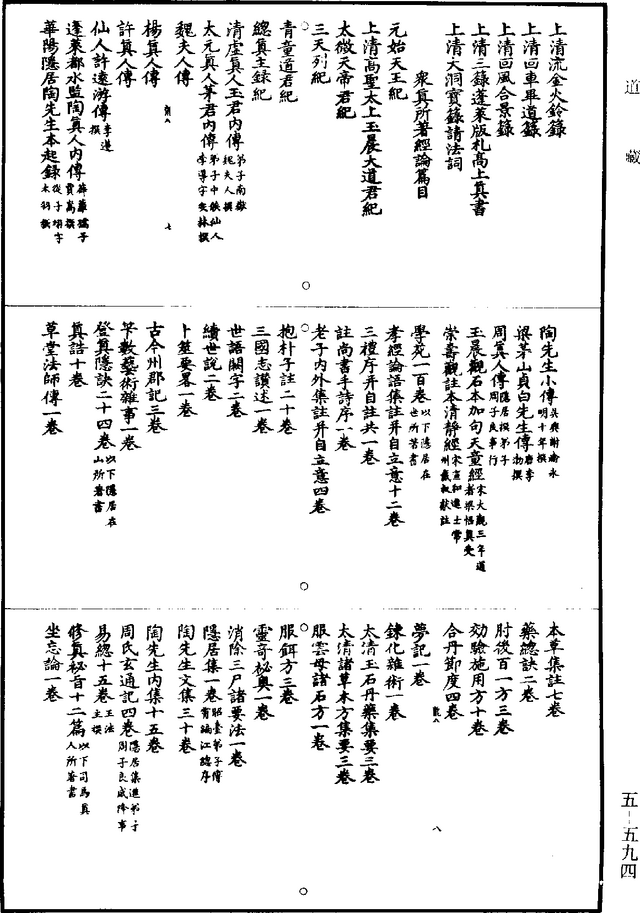 道藏
上清流金火鈴籙
上清回車畢道籙
上清回風合景籙
上清三籙蓬萊版札高上真書
上清大洞寶籙請法詞
眾真所著經論篇目
元始天王紀
上清高聖太上玉晨大道君紀
太微天帝君紀
三天列紀
青童道君紀
總真主錄紀
清虛真人王君內傳弟子南嶽魏夫人撰
太元真人茅君內傳弟子中候仙人李導字安林撰
魏夫人傳
楊真人傳
許真人傳
仙人許遠游傳李遵撰
蓬萊都水監陶真人內傳薛蘿孺子賈嵩撰
華陽隱居陶先生本起錄從子翊字木羽撰
七
陶先生小傳吳興謝瀹永明十年撰
梁茅山貞白先生傳唐李渤撰
周真人傳隱居撰弟子周子良事行
玉晨觀石本加句天童經宋大觀三年道者梁悟真受
崇壽觀註本清靜經宋宣和進士常州戴叔獻註
學苑一百卷以下隱居在世所著書
孝經論語集註并自立意十二卷
三禮序并自註共一卷
註尚書手詩序一卷
老子內外集註并自立意四卷
抱朴子註二十卷
三國志讚述一卷
世語闕字二卷
續世說二卷
卜筮要畧一卷
古今州郡記三卷
竿數藝術雜事一卷
登真隱訣二十四卷以下隱居在山所著書
真誥十卷
草堂法師傳一卷
本草集註七卷
藥總訣二卷
肘後百一方三卷
効驗施用方十卷
合丹節度四卷
八
夢記一卷
鍊化雜術一卷
太清玉石丹藥集要三卷
太清諸草木方集要三卷
服雲母諸石方一卷
服餌方三卷
靈奇祕奧一卷
消除三尸諸要法一卷
隱居集一卷昭臺弟子傅霄編江總序
陶先生文集三十卷
陶先生內集十五卷
周氏玄通記四卷隱居集進弟子周子良感降事
易總十五卷王法主撰
修真祕旨十二篇以下司馬真人所著書
坐忘論一卷
五-五九四